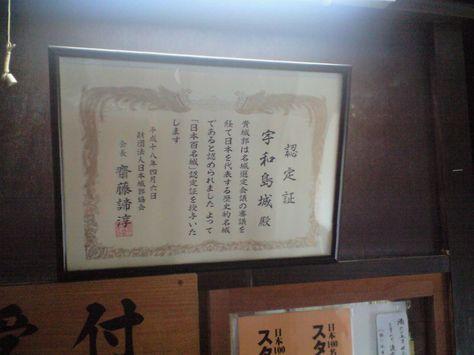 認定証
宇和島城 殿
貴城郭は名城選定会議の審議を
経て日本を代表する歴史的名城
であると認められました よって
「日本百名城」認定証を授与いた
します
平成十八年四月六日
財団法人日本城郭協会
会長 齋藤諦淳
受付
日本100
スタ
日本100名
スタ